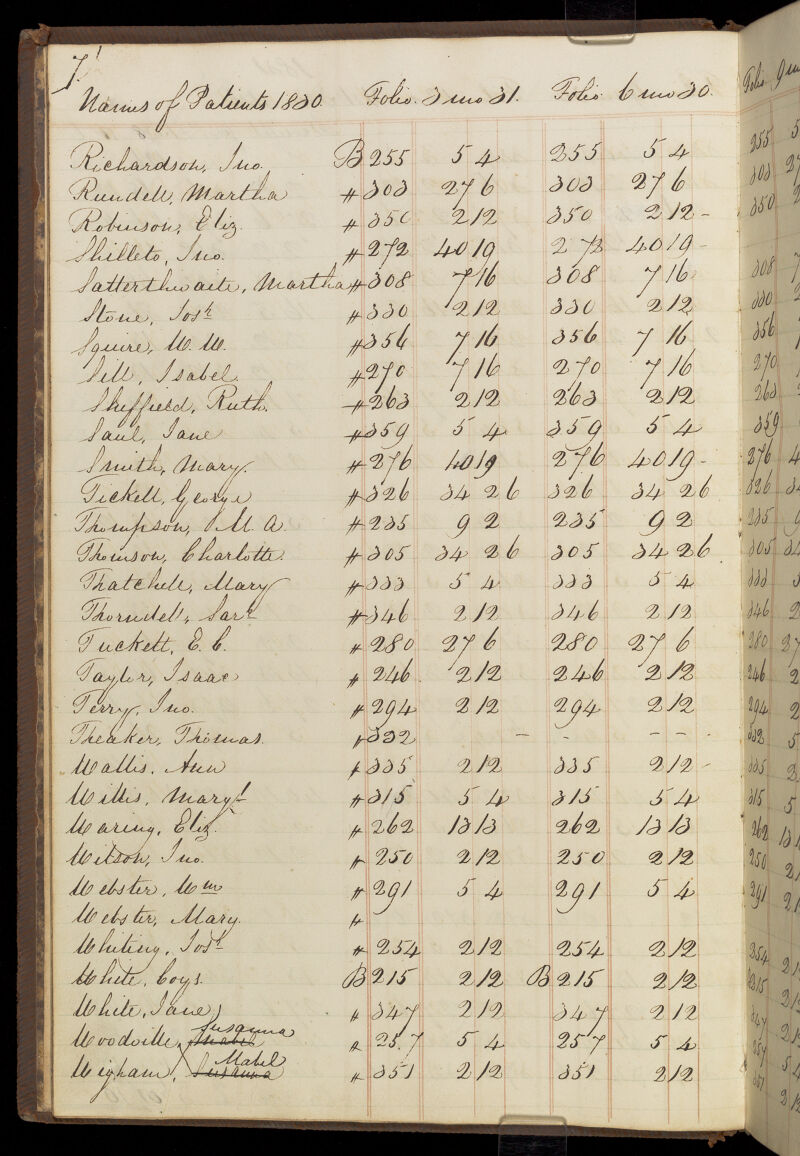 7
Names of Patients 1830 Folio 3 mo 31. Folio 6 mo 30. Folio 9 mo
Richardson, Jno. B 255 5 4 255 5 4 255
Rundell, Martha " 303 27 6 303 27 6 303 27
Robinson, Eliz. " 350 2 12 350 2 12 - 350 2
Shilleto, Jno. " 272 40 19 272 40 19 -
Satterthwaite, Martha " 308 7 16 308 7 16 308 7
Stone, Josh " 330 2 12 330 2 12 330 2
Squire, W. W. " 356 7 16 356 7 16 356
Sill, Isabel " 270 7 16 270 7 16 270
Sheffield, Ruth. " 263 2 12 263 2 12 263
Saul, Jane " 359 5 4 359 5 4 359
Smith, Mary " 276 40 19 276 40 19 - 276 4
Tickell, George " 326 34 26 326 34 26 326 34
Thompson, M. A. " 235 9 2 235 9 2 235 9
Thomson, Charlotte. " 305 34 26 305 34 26 305 34
Thatchell, Mary " 333 5 4 333 5 4 333 5
Thorndell, Sarh " 346 2 12 346 2 12 346 2
Tuckett, E. C. " 280 27 6 280 27 6 280 27
Taylor, Isaac " 246 2 12 246 2 12 246 2
Terry, Jno. " 294 2 12 294 2 12 294 2
Theaker, Thomas " 332 - - - - 332 5
Wallis, Ann " 335 2 12 335 2 12 - 335 2
Willis, Mary " 315 5 4 315 5 4 315 5
Waring, Eliz. " 262 13 13 262 13 13 262 13
Wilson, Jno. " 250 2 12 250 2 12 250 2
Webster, Wm " 291 5 4 291 5 4 291 2
Webster, Mary "
Whiting, Josh " 254 2 12 254 2 12 354 2
White, Coys. B 215 2 12 B 215 2 12 215 2
White, Jane " 347 2 12 347 2 12 347 2
Woodville, Mabel Susanna " 257 5 4 257 5 4 257 5 4
Wigham, Susanna Mabel " 351 2 12 351 2 12 351 2